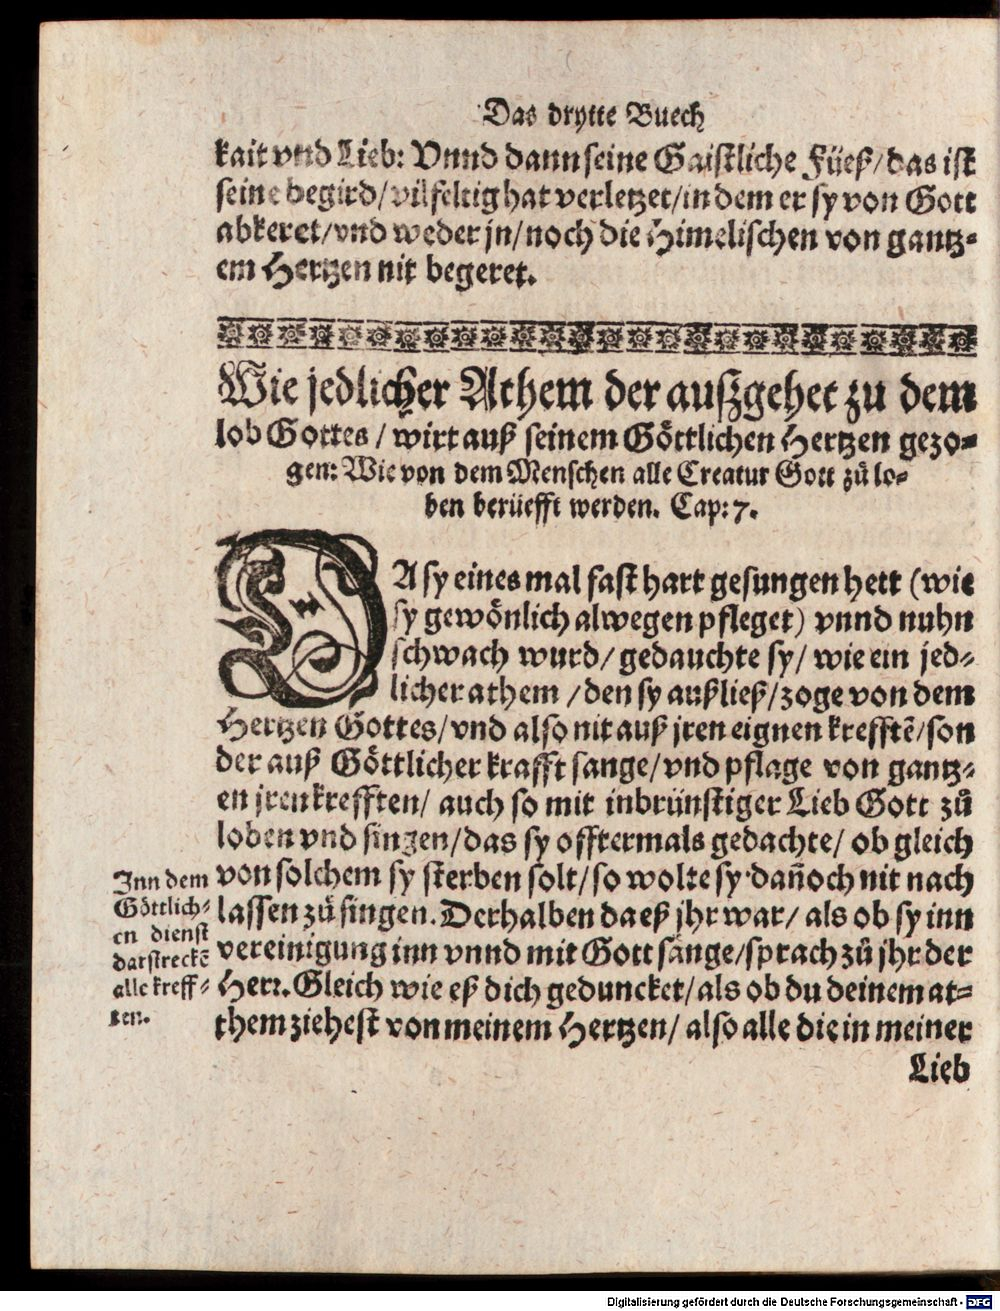 Das drytte Buech
kait vnd Lieb: Vnnd dann seine Gaistliche Füeß/das ist
seine begird/vilfeltig hat verletzet/in dem er sy von Gott
abkeret/vnd weder jn/noch die Himelischen von gantz-
em Hertzen nit begeret.
Wie jedlicher Athem der außgehet zu dem
lob Gottes / wirt auß seinem Göttlichen Hertzen gezo-
gen: Wie von dem Menschen alle Creatur Gott zů lo-
ben berüefft werden. Cap: 7.
DA sy eines mal fast hart gesungen hett (wie
sy gewönlich alwegen pfleget) vnnd nuhn
schwach wurd/ gedauchte sy/ wie ein jed-
licher athem /den sy außließ/zoge von dem
Hertzen Gottes/vnd also nit auß jren eignen krefftē/son
der auß Göttlicher krafft sange/vnd pflage von gantz-
en jren krefften/ auch so mit inbrünstiger Lieb Gott zů
loben vnd singen/das sy offtermals gedachte/ ob gleich
von solchem sy sterben solt/so wolte sy dañoch nit nach
lassen zů singen. Derhalben da eß jhr war/ als ob sy inn
vereinigung inn vnnd mit Gott sänge/sprach zů jhr der
Herr. Gleich wie eß dich geduncket/als ob du deinem at-
them ziehest von meinem Hertzen/ also alle die in meiner
Lieb
Inn dem
Göttlich-
en dienst
darstreckē
alle kreff-
ten.
Digitalisierung gefördert durch die Deutsche Forschungsgemeinschaft - DFG